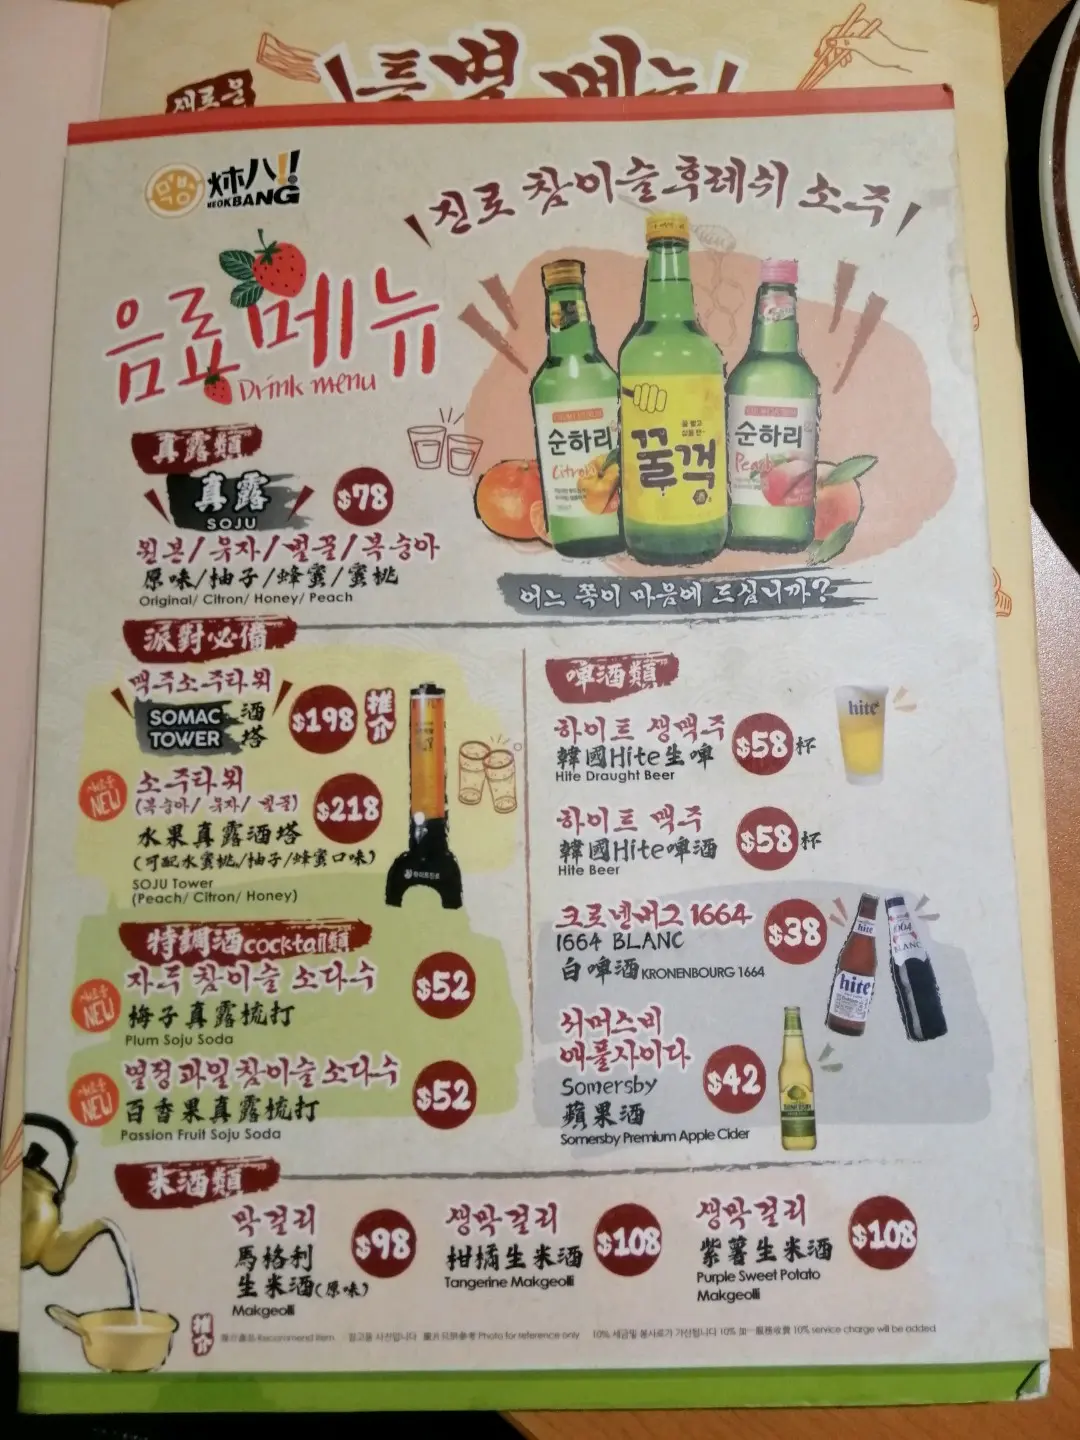 새로운
특별 메뉴
먹방
炑八!!
MEOKBANG
진로 참이슬 후레쉬 소주
음료 메뉴
Drink menu
순하리
Citron
꿀꺽
순하리
Peach
真露類
真露
SOJU
$78
원본/유자/벌꿀/복숭아
原味/柚子/蜂蜜/蜜桃
Original/ Citron/ Honey/ Peach
어느 쪽이 마음에 드십니까?
派對必備
맥주소주타워
SOMAC TOWER
酒塔
$198
推介
NEW
소주타워
(복숭아/ 유자/ 벌꿀)
$218
水果真露酒塔
(可配水蜜桃/柚子/蜂蜜口味)
SOJU Tower
(Peach/ Citron/ Honey)
特調酒cocktail類
자두 참이슬 소다수
$52
NEW
梅子真露梳打
Plum Soju Soda
열정과일 참이슬 소다수
$52
NEW
百香果真露梳打
Passion Fruit Soju Soda
啤酒類
하이트 생맥주
韓國Hite生啤
Hite Draught Beer
$58杯
hite
하이트 맥주
韓國Hite啤酒
Hite Beer
$58杯
크로넨버그 1664
1664 BLANC
白啤酒 KRONENBOURG 1664
$38
hite
hite
1664
BLANC
서머스비
애플사이다
Somersby
蘋果酒
Somersby Premium Apple Cider
$42
SOMERSBY
米酒類
막걸리
馬格利
生米酒(原味)
Makgeolli
$98
생막걸리
柑橘生米酒
Tangerine Makgeolli
$108
생막걸리
紫薯生米酒
Purple Sweet Potato
Makgeolli
$108
推介
Recommend item 참고용 사진입니다 圖片只供參考 Photo for reference only 10% 세금및 봉사료가 가산됩니다 10% 加一服務收費 10% service charge will be added